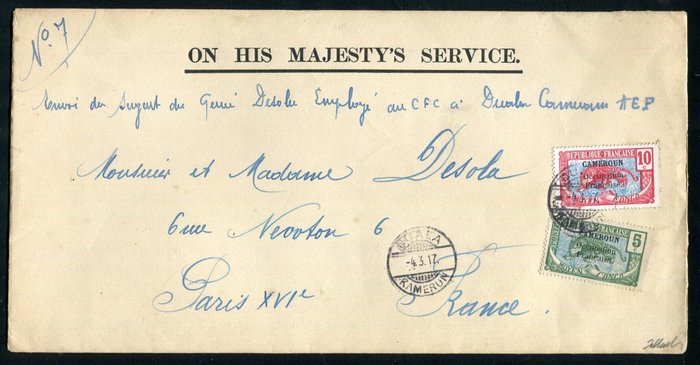 No. 7
ON HIS MAJESTY'S SERVICE.
Envoi du Sergent du Génie Desola Employé au CFC à Duala Cameroun AEF
Monsieur et Madame Desola
6 rue Newton 6
Paris XVIe
France
REPUBLIQUE FRANÇAISE
10
CAMEROUN
Occupation
Française
CONGO
DUALA
-4.3.17
KAMERUN
5
c
CAMEROUN
Occupation
Française